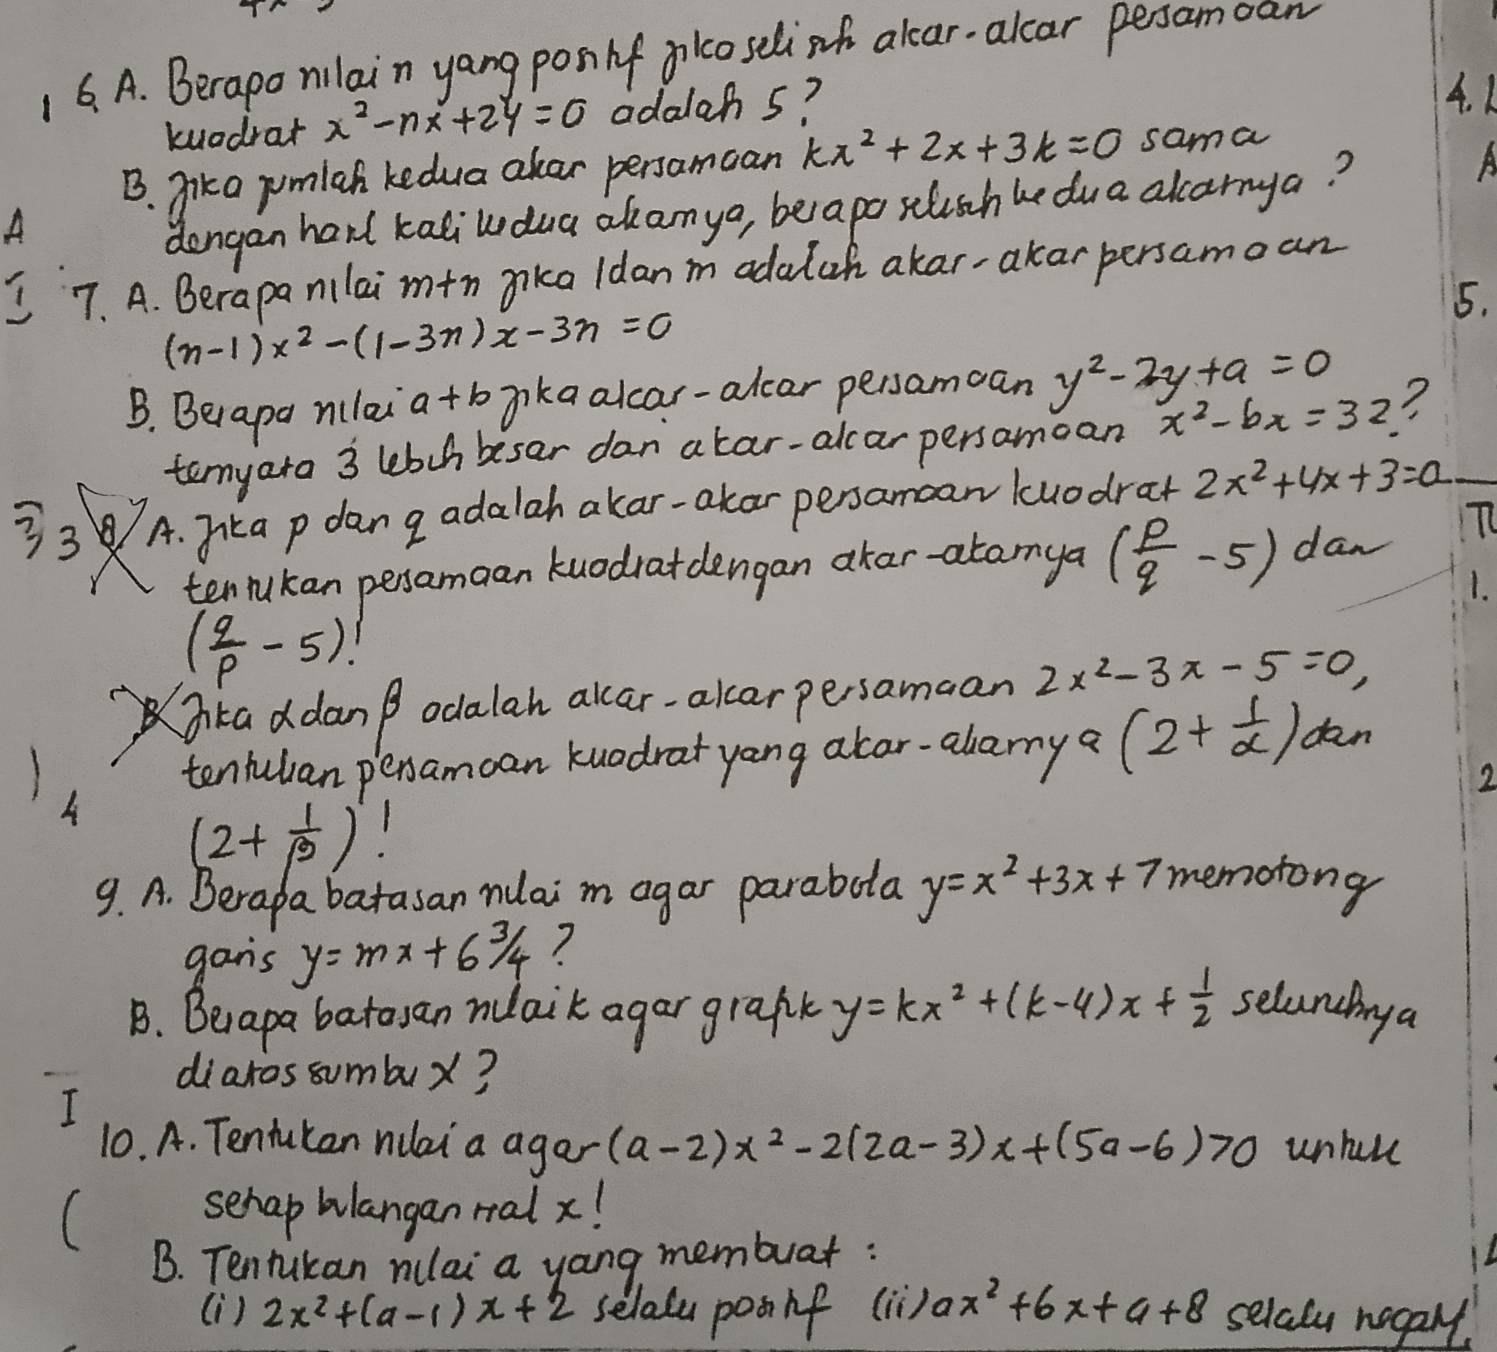 6. A. Berapa nilai n yang positif jika selisih akar-akar persamaan
kuadrat x² - nx + 24 = 0 adalah 5?
B. Jika jumlah kedua akar persamaan kx² + 2x + 3k = 0 sama
dengan hasil kali kedua akarnya, berapa selisih kedua akarnya?
7. A. Berapa nilai m+n jika 1 dan m adalah akar-akar persamaan
(n-1)x² - (1-3n)x - 3n = 0
B. Berapa nilai a+b jika akar-akar persamaan y² - 2y + a = 0
ternyata 3 lebih besar dari akar-akar persamaan x² - bx = 32?
3 8. A. Jika p dan q adalah akar-akar persamaan kuadrat 2x² + 4x + 3 = 0
tentukan persamaan kuadrat dengan akar-akarnya (p/q - 5) dan
(q/p - 5)!
B. Jika α dan β adalah akar-akar persamaan 2x² - 3x - 5 = 0,
tentukan persamaan kuadrat yang akar-akarnya (2 + 1/α) dan
(2 + 1/β)!
9. A. Berapa batasan nilai m agar parabola y = x² + 3x + 7 memotong
garis y = mx + 6 3/4?
B. Berapa batasan nilai k agar grafik y = kx² + (k-4)x + 1/2 seluruhnya
diatas sumbu X?
10. A. Tentukan nilai a agar (a-2)x² - 2(2a-3)x + (5a-6) > 0 untuk
setiap bilangan real x!
B. Tentukan nilai a yang membuat:
(i) 2x² + (a-1)x + 2 selalu positif (ii) ax² + 6x + a + 8 selalu negatif!